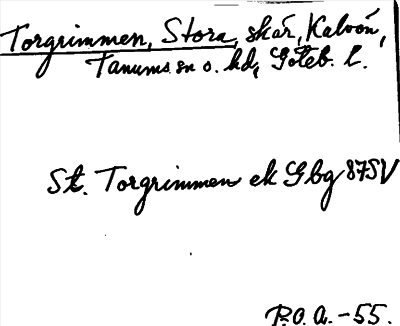 Torgrimmen, Stora, skär, Kalvön,
Tanums sn o. hd, Göteb. l.
St. Torgrimmen ek Gbg 87SV
P.O.A. -55.